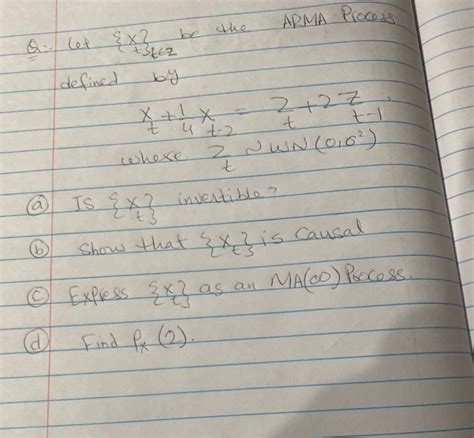 Q:- Let {X_t}_{t∈Z} be the ARMA Process
defined by
X_t + 1/4 X_{t-2} = Z_t + 2 Z_{t-1},
where Z_t ~ WN(0,σ²)
(a) Is {X_t} invertible?
(b) Show that {X_t} is Causal
(c) Express {X_t} as an MA(∞) Process.
(d) Find ρ_X(2).